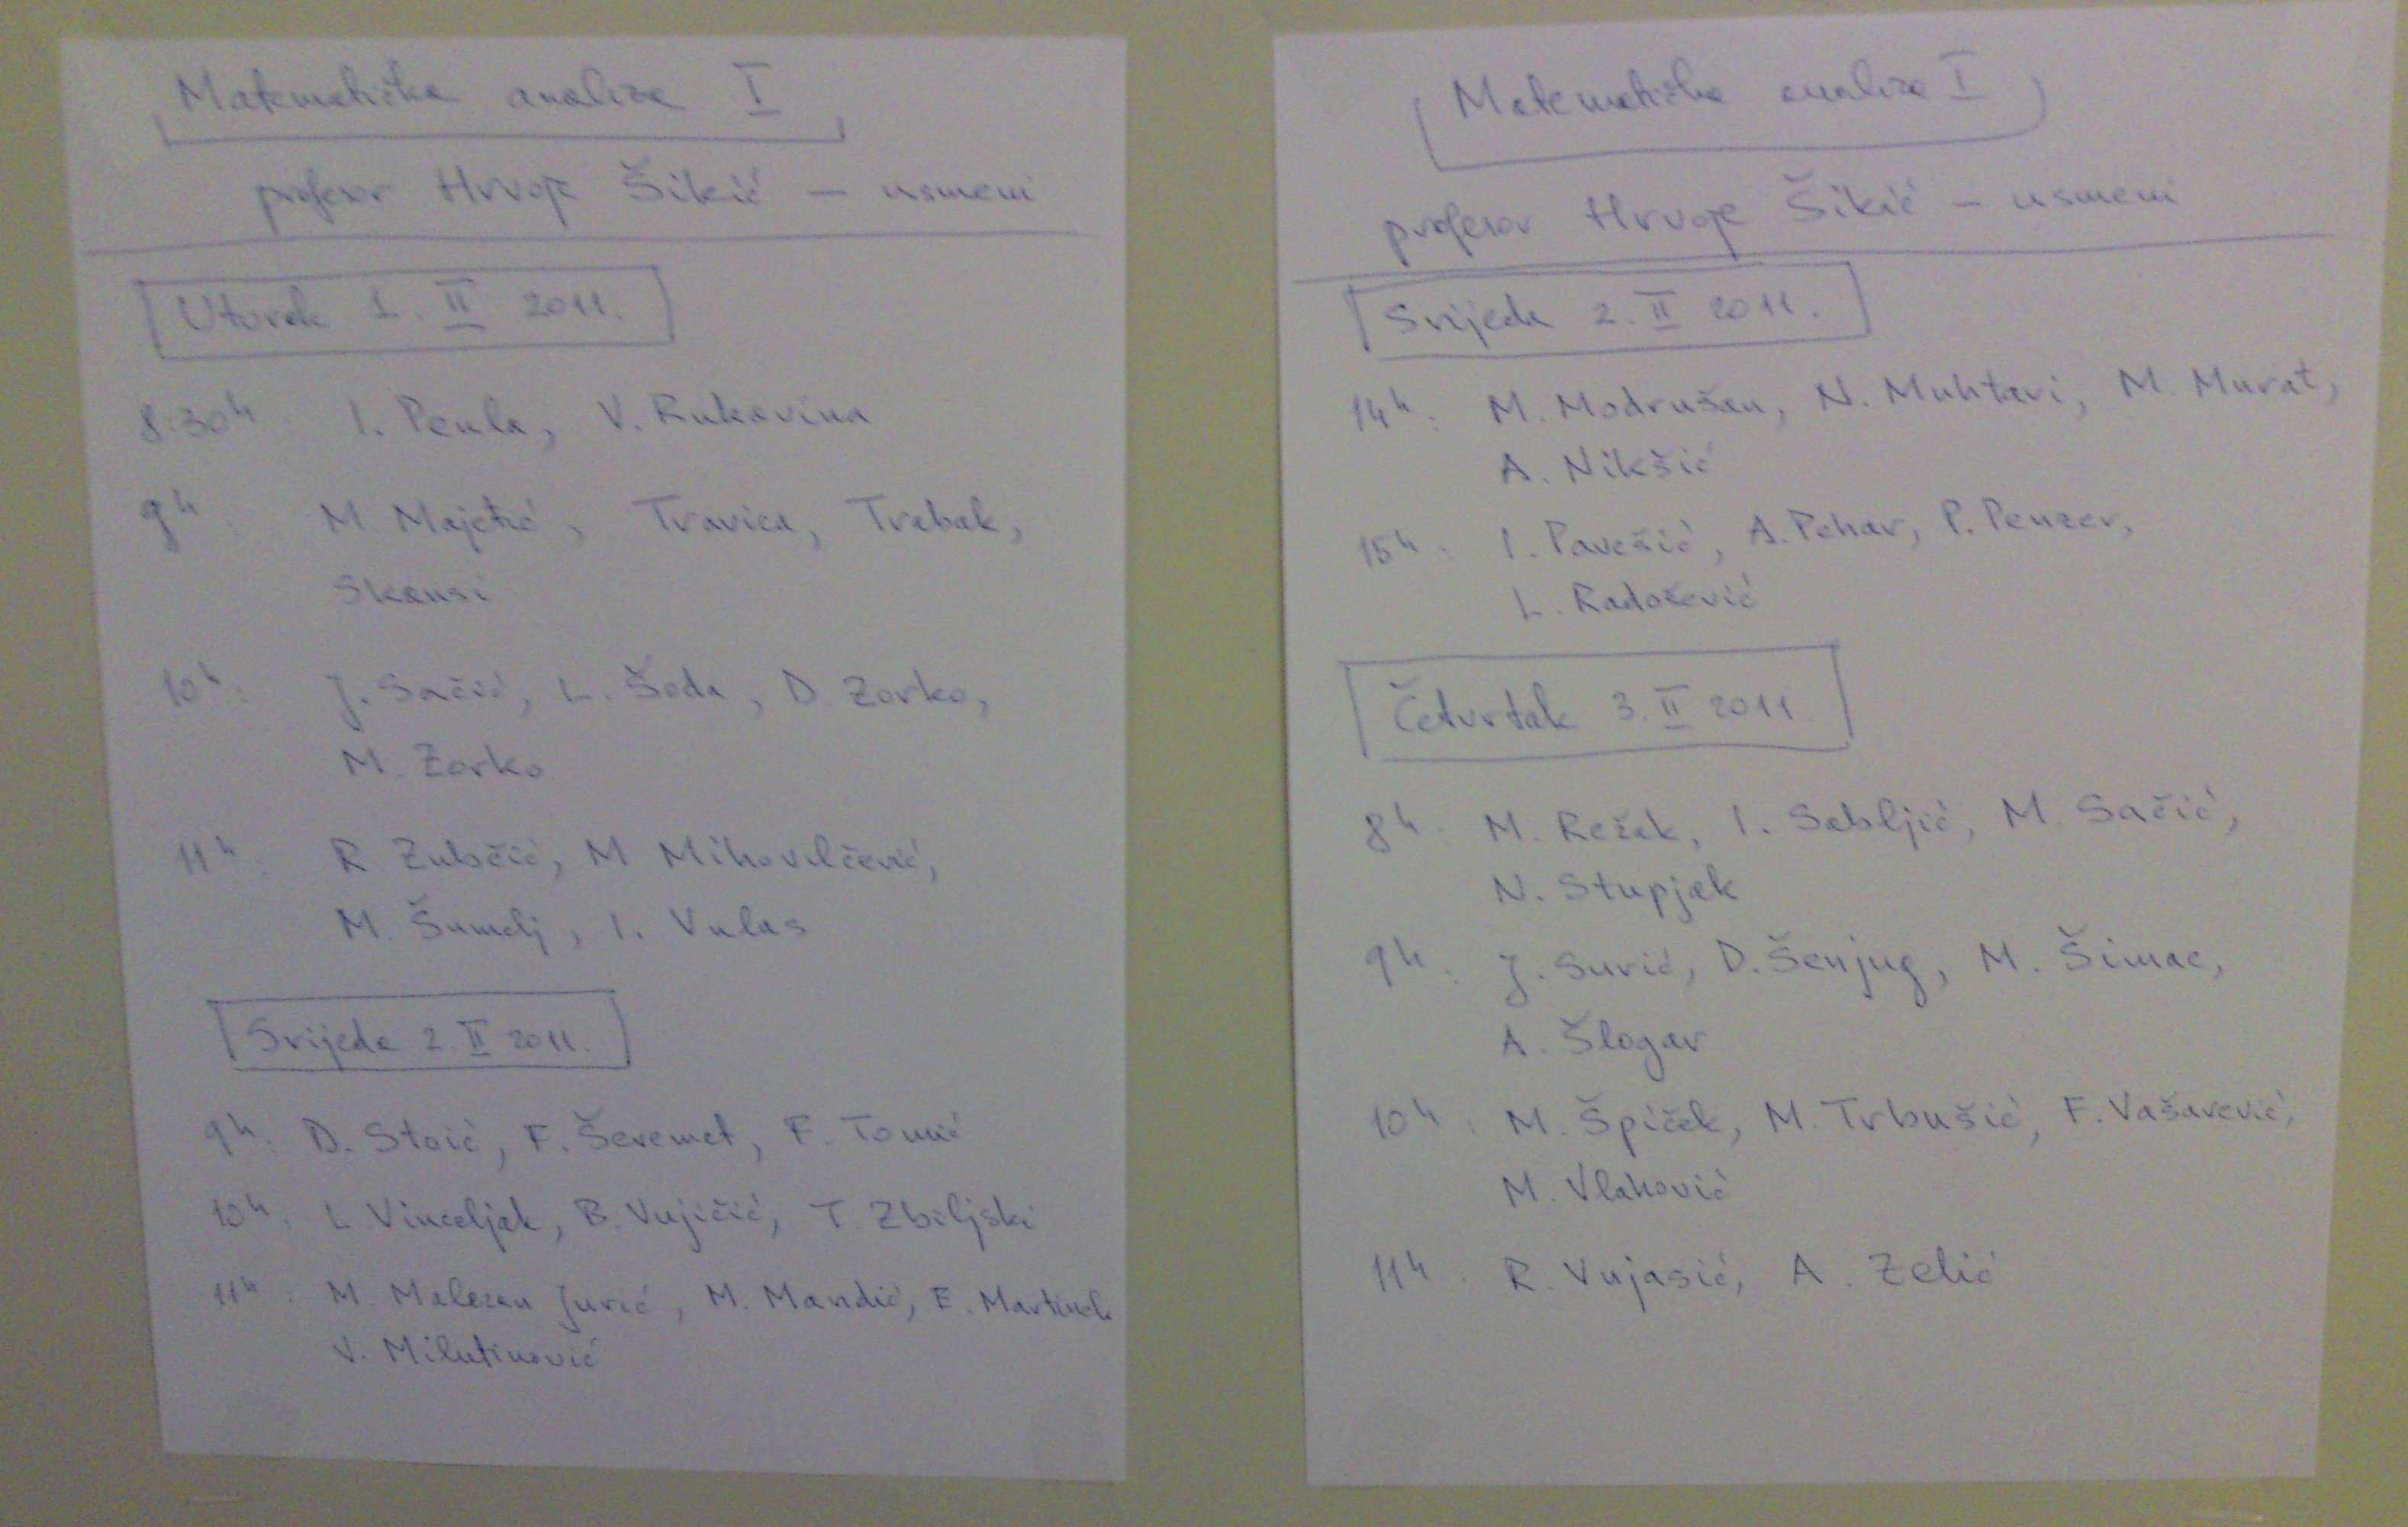 Matematička analiza I
profesor Hrvoje Šikić – usmeni
Utorak 1. II 2011.
8:30h: I. Peula, V. Rukavina
9h: M. Majetić, Travica, Trabak,
Skansi
10h: J. Sačić, L. Šoda, D. Zorko,
M. Zorko
11h: R. Zubčić, M. Mihovilčević,
M. Šumelj, I. Vulas
Srijeda 2. II 2011.
9h: D. Stoić, F. Šeremet, F. Tomić
10h: L. Vinceljak, B. Vujičić, T. Zbiljski
11h: M. Malezan Jurić, M. Mandić, E. Martinek
V. Milutinović
Matematička analiza I
profesor Hrvoje Šikić – usmeni
Srijeda 2. II 2011.
14h: M. Modrušan, N. Muhtari, M. Murat,
A. Nikšić
15h: I. Pavešić, A. Pehar, P. Penzer,
L. Radošević
Četvrtak 3. II 2011.
8h: M. Režek, I. Sabljić, M. Sačić,
N. Stupjak
9h: J. Surić, D. Šenjug, M. Šimac,
A. Šlogar
10h: M. Špiček, M. Trbušić, F. Vašarević,
M. Vlahović
11h: R. Vujasić, A. Zelić